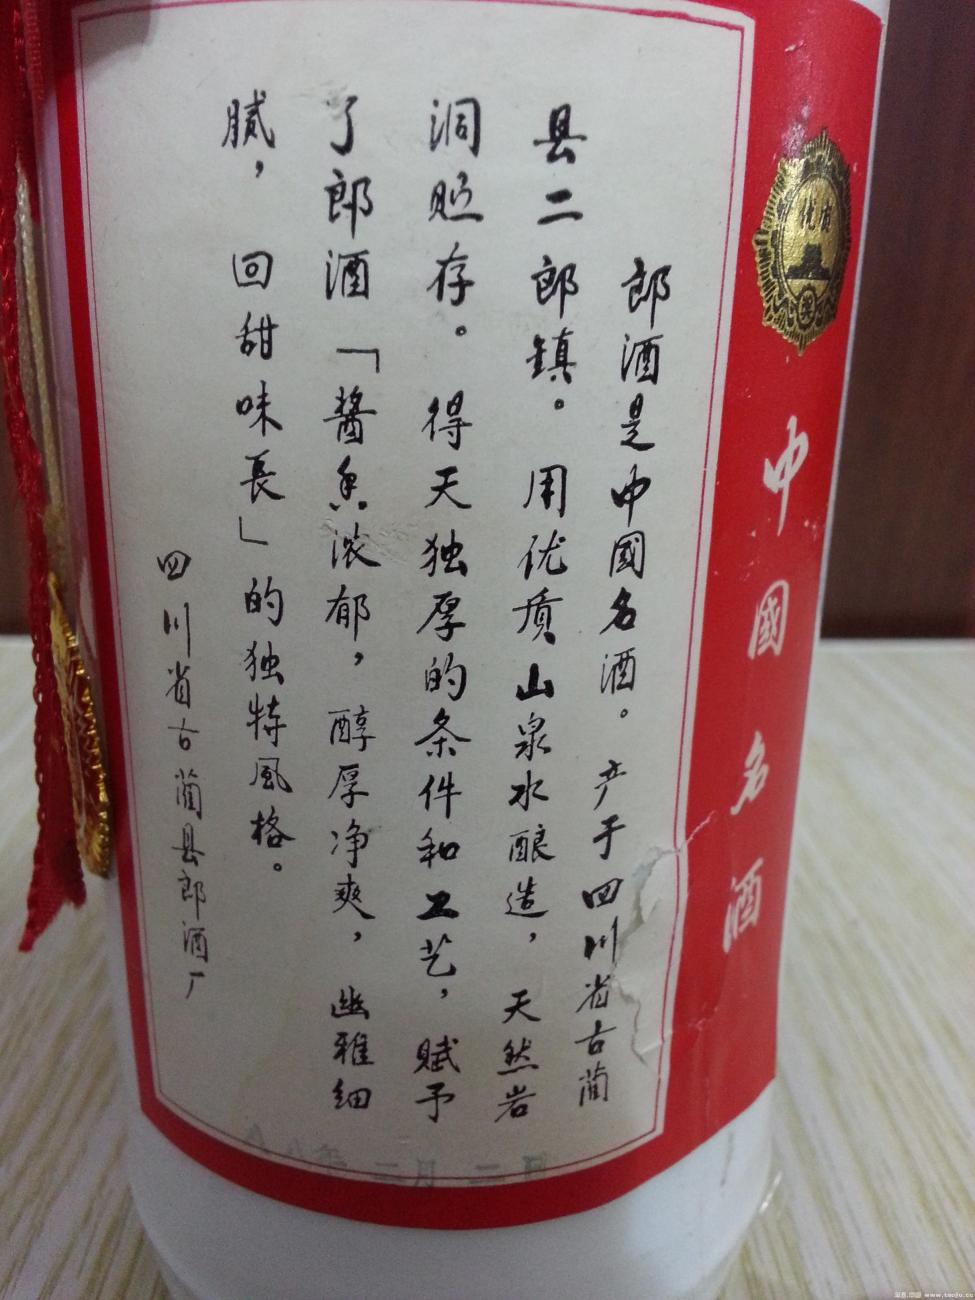 郎酒是中國名酒。产于四川省古蔺
县二郎镇。用优质山泉水酿造，天然岩
洞贮存。得天独厚的条件和工艺，赋予
了郎酒「醬香浓郁，醇厚净爽，幽雅细
腻，回甜味長」的独特風格。
四川省古蔺县郎酒厂
中國名酒
优质
八八年二月二日